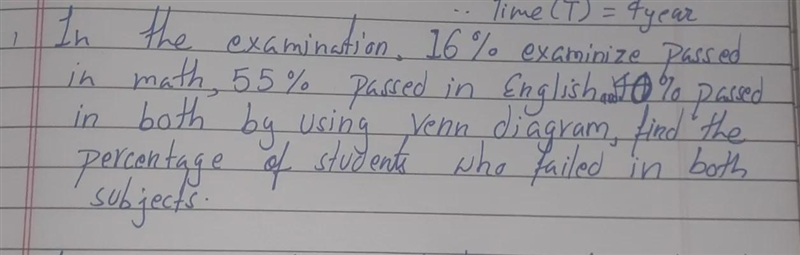 ∴ Time (T) = 4year
1 In the examination, 16% examinize passed
in math, 55% passed in English and 10% passed
in both by using venn diagram, find the
percentage of students who failed in both
subjects.